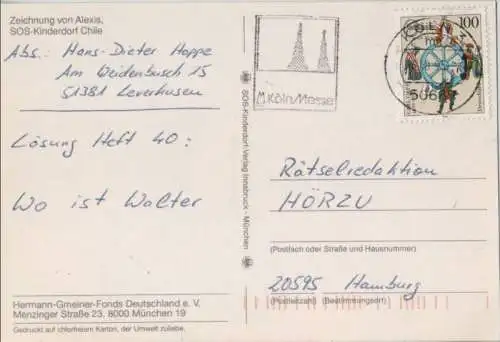 Zeichnung von Alexis,
SOS-Kinderdorf Chile
Abs.: Hans-Dieter Hoppe
Am Weidenbusch 15
51381 Leverkusen
Lösung Heft 40:
Wo ist Walter
Hermann-Gmeiner-Fonds Deutschland e. V.
Menzinger Straße 23, 8000 München 19
Gedruckt auf chlorfreiem Karton, der Umwelt zuliebe.
SOS-Kinderdorf-Verlag Innsbruck - München
KölnMesse
KÖLN
100
Rätselredaktion
HÖRZU
(Postfach oder Straße und Hausnummer)
20595 Hamburg
(Postleitzahl) (Bestimmungsort)